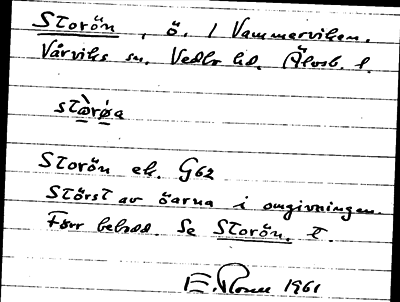 Storön, ö. i Vammerviken.
Vårviks sn. Vedbo hd. Älvsb. l.
stòrø̀a
Storön ek. G62
Störst av öarna i omgivningen.
Förr bebodd. Se Storön, t.
1961